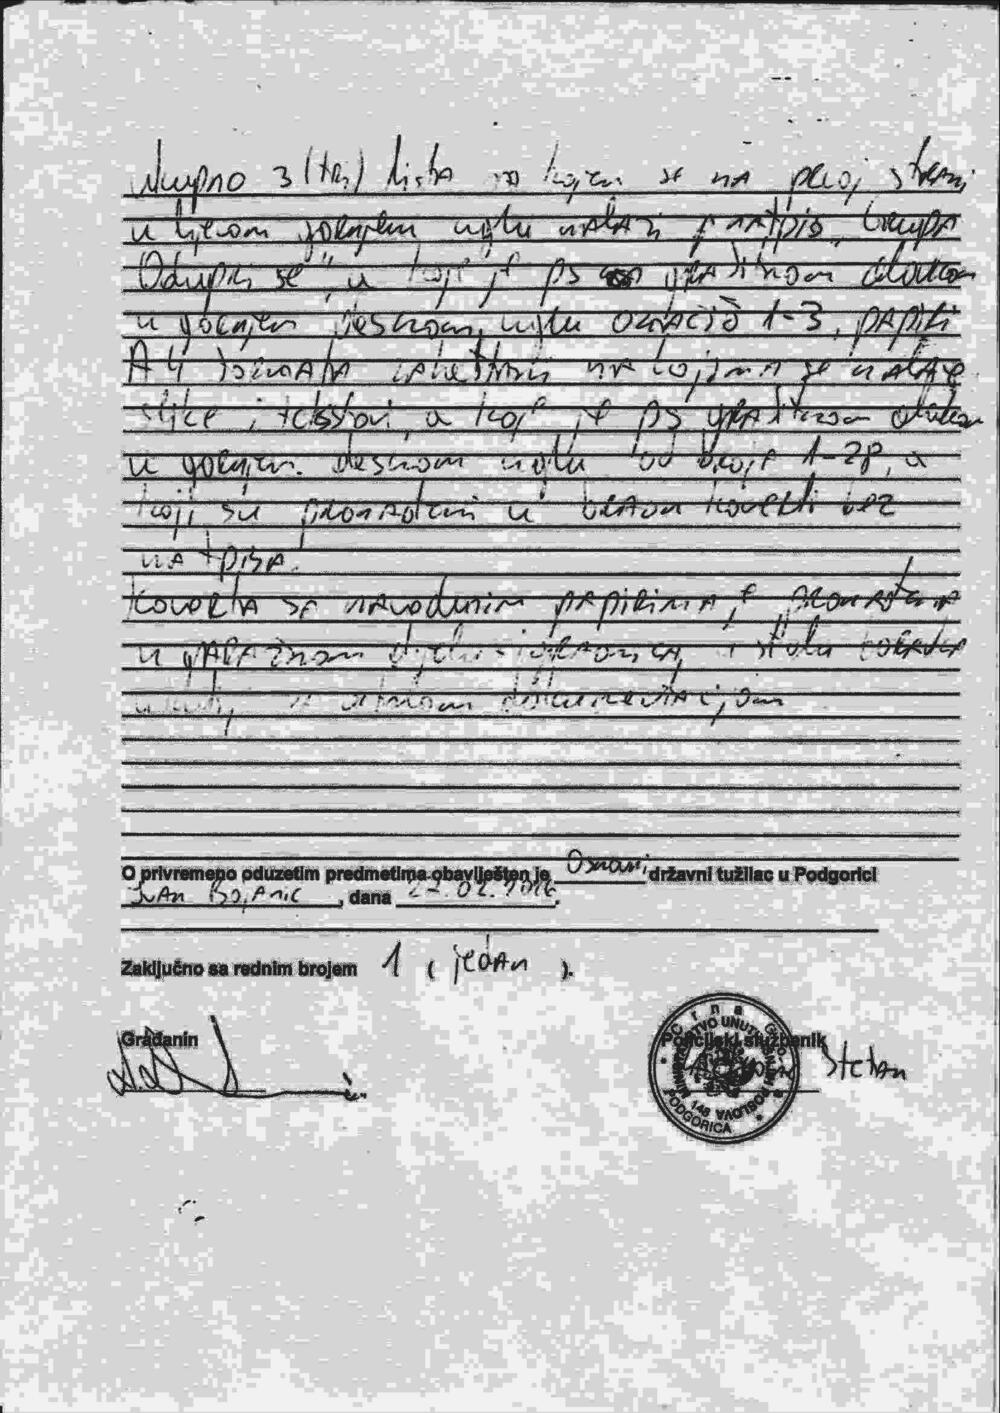 ukupno 3 (tri) lista na kojem se na prvoj strani
u lijevom gornjem uglu nalazi natpis „Grupa
Odupri se", u koji je PS grafitnom olovkom
u gornjem desnom uglu označio 1-3, papiri
A4 formata na kojima se nalaze
slike i tekstovi, a koje je PS grafitnom olovkom
u gornjem desnom uglu od broja 1-28, a
koji su pronađeni u braon koverti bez
natpisa.
Koverta sa navodnim papirima je pronađena
u garažnom dijelu
u kući, sa ostalom dokumentacijom
O privremeno oduzetim predmetima obaviješten je Osnovni državni tužilac u Podgorici
Ivan Bojanić, dana 22.02.2016.
Zaključno sa rednim brojem 1 (jedan).
Građanin
Policijski službenik
Stefan
Crna Gora
MINISTARSTVO UNUTRAŠNJIH POSLOVA
PODGORICA